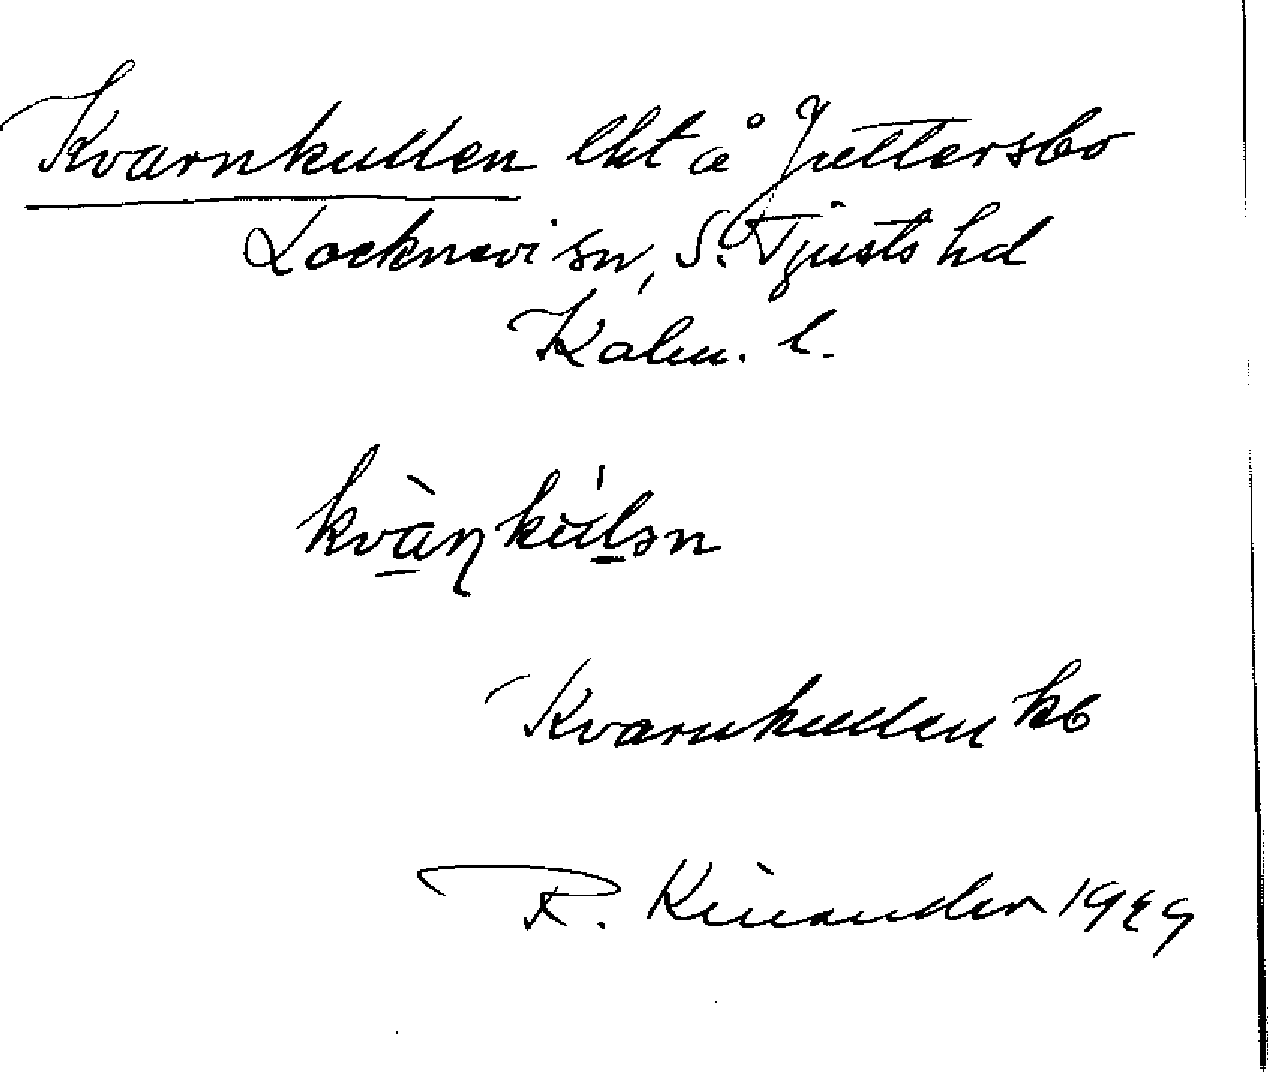 Kvarnkullen lht å Juttersbo
Locknevi sn, S. Tjusts hd
Kalm. l.
kvàṇkúlən
Kvarnkullen kb
R. Kinander 1929